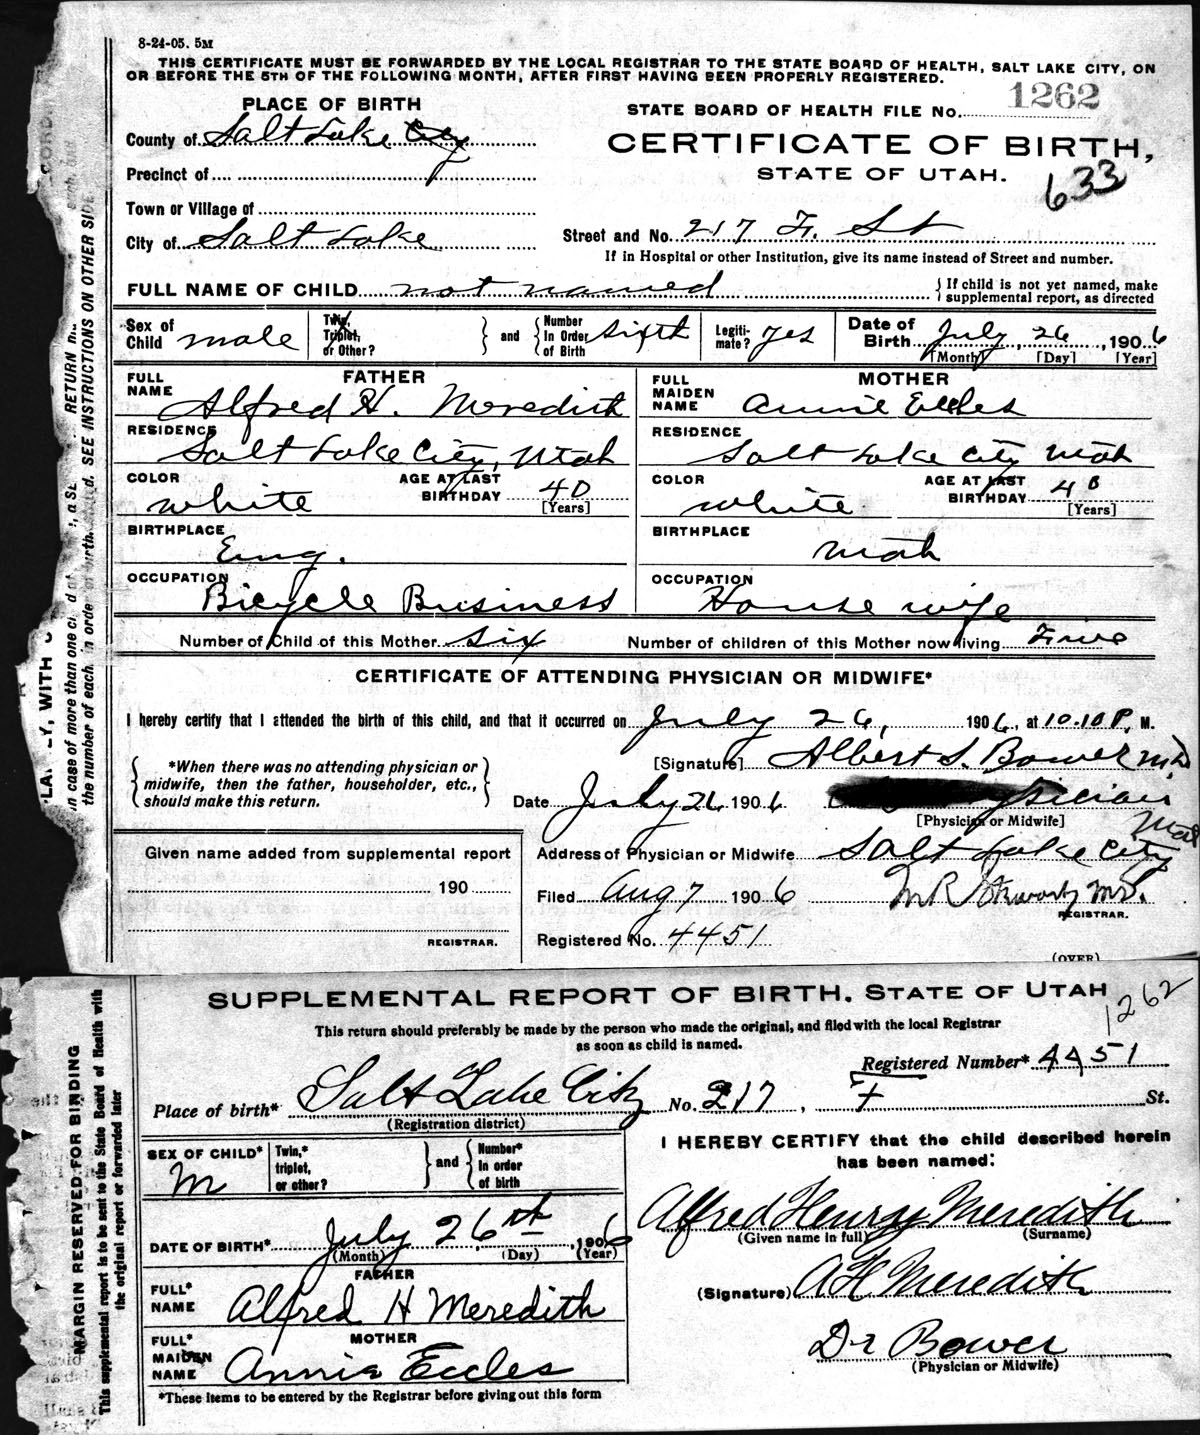 8-24-05. 5M
THIS CERTIFICATE MUST BE FORWARDED BY THE LOCAL REGISTRAR TO THE STATE BOARD OF HEALTH, SALT LAKE CITY, ON
OR BEFORE THE 5TH OF THE FOLLOWING MONTH, AFTER FIRST HAVING BEEN PROPERLY REGISTERED.
PLACE OF BIRTH
STATE BOARD OF HEALTH FILE No. 1262
County of Salt Lake City
CERTIFICATE OF BIRTH,
Precinct of
STATE OF UTAH.
633
Town or Village of
City of Salt Lake
Street and No. 217 F. St
If in Hospital or other Institution, give its name instead of Street and number.
FULL NAME OF CHILD not named
If child is not yet named, make
supplemental report, as directed
Sex of Child male
Twin, Triplet, or Other?
and
Number In Order of Birth sixth
Legiti- mate? yes
Date of Birth July 26, 1906
[Month] [Day] [Year]
FATHER
FULL NAME Alfred H. Meredith
MOTHER
FULL MAIDEN NAME Annie Eccles
RESIDENCE Salt Lake City, Utah
RESIDENCE Salt Lake City Utah
COLOR white
AGE AT LAST BIRTHDAY 40
[Years]
COLOR white
AGE AT LAST BIRTHDAY 40
[Years]
BIRTHPLACE Eng.
BIRTHPLACE Utah
OCCUPATION Bicycle Business
OCCUPATION House wife
Number of Child of this Mother six
Number of children of this Mother now living Five
CERTIFICATE OF ATTENDING PHYSICIAN OR MIDWIFE*
I hereby certify that I attended the birth of this child, and that it occurred on July 26, 1906, at 10.10 P. M.
*When there was no attending physician or
midwife, then the father, householder, etc.,
should make this return.
[Signature] Albert S. Bower M.D.
Date July 26 1906
Physician
[Physician or Midwife]
Address of Physician or Midwife Salt Lake City Utah
Given name added from supplemental report
190
REGISTRAR.
Filed Aug 7 1906
REGISTRAR.
Registered No. 4451
(OVER)
SEE INSTRUCTIONS ON OTHER SIDE
SUPPLEMENTAL REPORT OF BIRTH. STATE OF UTAH
1262
This return should preferably be made by the person who made the original, and filed with the local Registrar
as soon as child is named.
Registered Number* 4451
Place of birth* Salt Lake City No. 217, F St.
(Registration district)
SEX OF CHILD* M
Twin,* triplet, or other?
and
Number* In order of birth
I HEREBY CERTIFY that the child described herein
has been named:
Alfred Henry Meredith
(Given name in full) (Surname)
DATE OF BIRTH* July 26st, 1906
(Month) (Day) (Year)
FATHER
FULL* NAME Alfred H Meredith
(Signature) A H Meredith
MOTHER
FULL* MAIDEN NAME Annie Eccles
Dr Bower
(Physician or Midwife)
*These items to be entered by the Registrar before giving out this form
MARGIN RESERVED FOR BINDING
This supplemental report is to be sent to the State Board of Health with
the original report or forwarded later